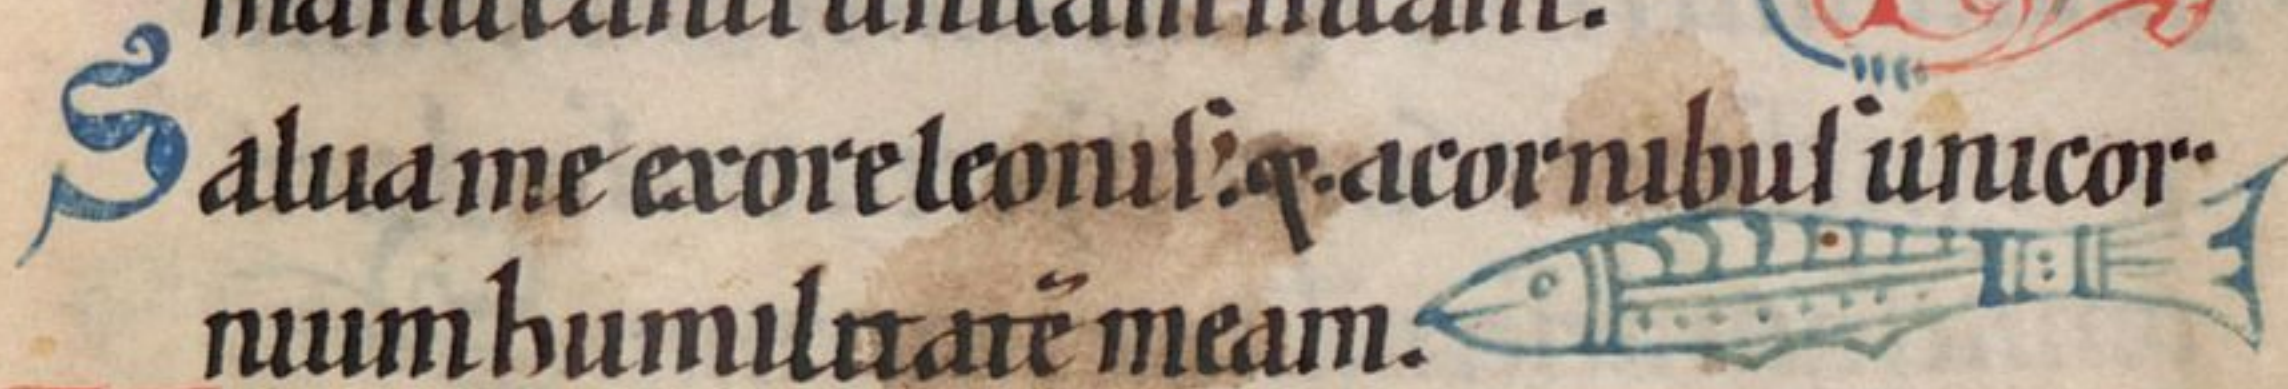 Salua me ex ore leonis: & a cornibus unicor
nium humilitatē meam.